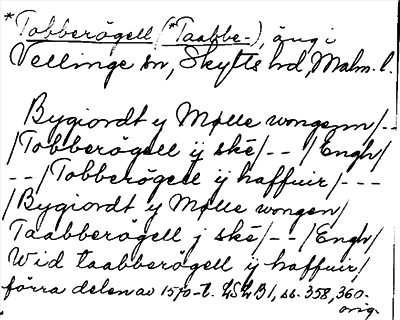 *Tobberögell (*Taabbe-), äng i
Vellinge sn, Skytts hd, Malm. l.
Bygiordt y Mølle wongenn/--
/Tobberögell ij ske/-- /Engh/
--/Tobberögell ij haffuir/---
/Bygiordt y Mølle wongen/
Taabberögell j ske/--/Engh/
Wid taabberögell ij haffuir/
förra delen av 1570-t. LSLB1, ss. 358, 360.
orig.